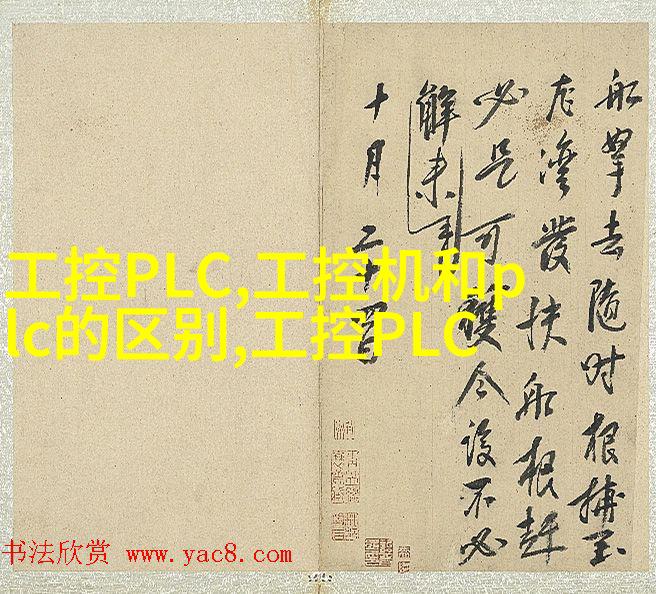 船去随时根捕至
湾发扶船根赶
必是可獲令後不必
解来
十月二十四日
工控PLC,工控机和p
lc的区别,工控PLC
书法欣赏 www.yac8.com